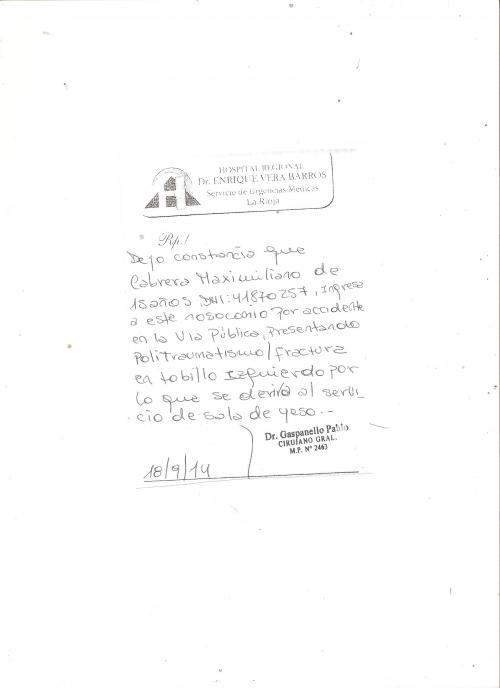 HOSPITAL REGIONAL
Dr. ENRIQUE VERA BARROS
Servicio de Urgencias Médicas
La Rioja
Rp.!
Dejo constancia que
Cabrera Maximiliano de
15años DNI:41870257, Ingresa
a este nosocomio por accidente
en la Via Pública, presentando
Politraumatismo/fractura
en tobillo Izquierdo por
lo que se derivó al servi-
cio de sala de yeso.-
Dr. Gaspanello Pablo
CIRUJANO GRAL.
M.P. Nº 2463
18/9/14